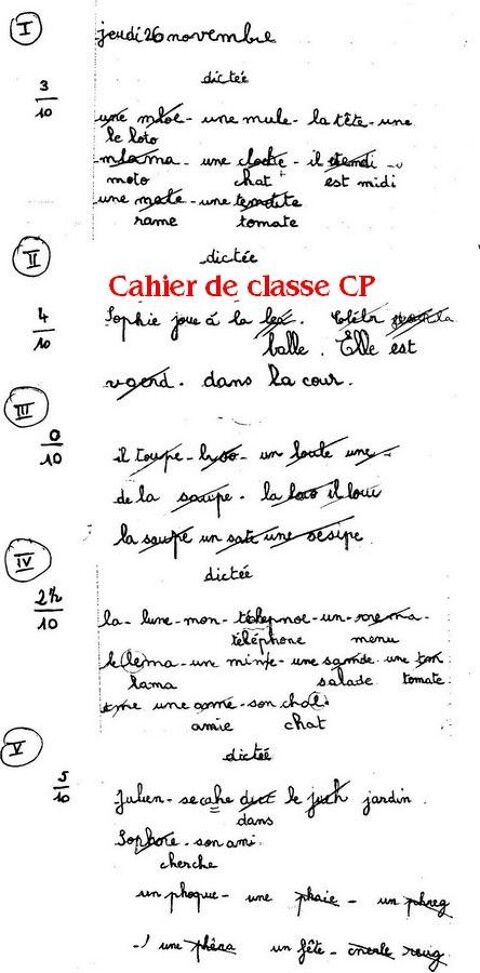 I
jeudi 26 novembre
dictée
3
10
une mloe - une mule - la tête - une
le loto
mlama - une cloche - il
moto chat est midi
une mole - une
rame tomate
II
dictée
Cahier de classe CP
4
10
Sophie joue á la
balle . Elle est
dans la cour.
III
0
10
il toupe - - un loute une -
de la saupe . la loto il loui
la soupe un sate une sesipe
IV
dictée
2 1/2
10
la - lune - mon - - un -
téléphone menu
le lema - un minte - une samde . une
lama salade tomate
une - son chat.
amie chat
V
dictée
5
10
Julien - secahe le jardin .
dans
Sophore . son ami .
cherche
un phoque - une phaie - un phreg
une phêna un fête -